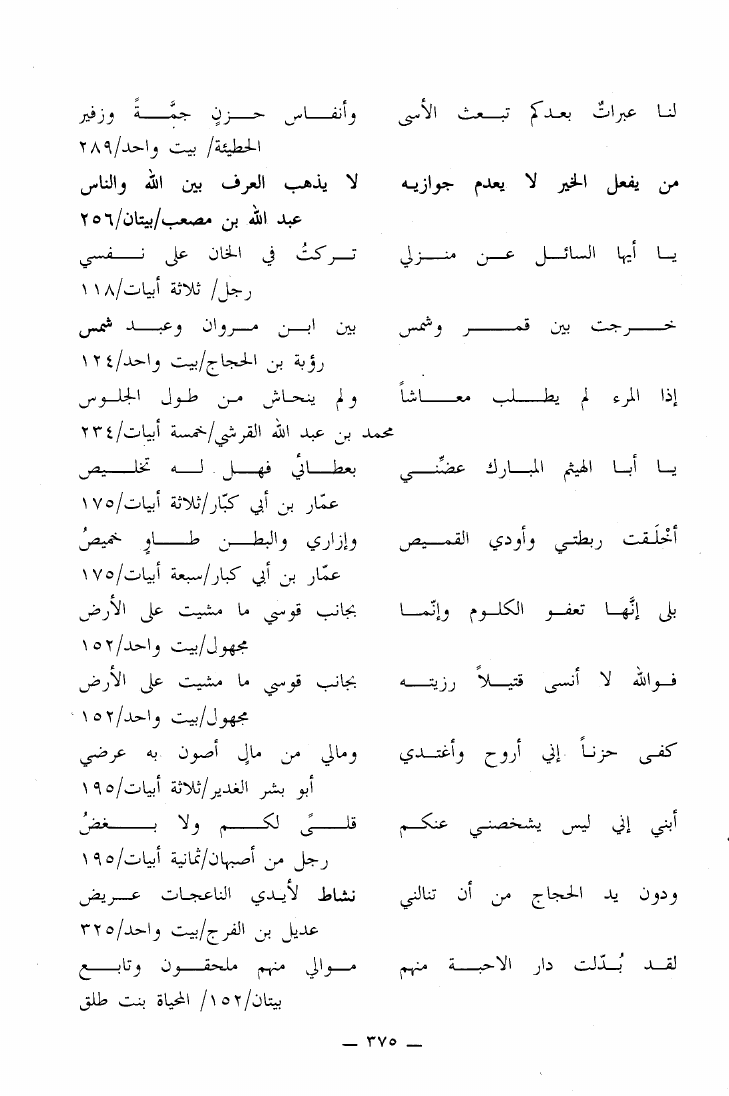 لنا عبراتٌ بعدكم تبعث الأسى وأنفاس حزنٍ جمَّةً وزفير
الحطيئة/ بيت واحد/٢٨٩
من يفعل الخير لا يعدم جوازيه لا يذهب العرف بين الله والناس
عبد الله بن مصعب/بيتان/٢٥٦
يا أيها السائل عن منزلي تركتُ في الخان على نفسي
رجل/ ثلاثة أبيات/١١٨
خرجت بين قمر وشمس بين ابن مروان وعبد شمس
رؤبة بن الحجاج/بيت واحد/١٢٤
إذا المرء لم يطلب معاشاً ولم ينحاش من طول الجلوس
محمد بن عبد الله القرشي/خمسة أبيات/٢٣٤
يا أبا الهيثم المبارك عضّني بعطائي فهل له تخليص
عمّار بن أبي كبّار/ثلاثة أبيات/١٧٥
أخْلَقت ريطتي وأودي القميص وإزاري والبطن طاوٍ خميصُ
عمّار بن أبي كبار/سبعة أبيات/١٧٥
بلى إنَّها تعفو الكلوم وإنّما بجانب قوسي ما مشيت على الأرض
مجهول/بيت واحد/١٥٢
فوالله لا أنسى قتيلاً رزيته بجانب قوسي ما مشيت على الأرض
مجهول/بيت واحد/١٥٢
كفى حزناً إني أروح وأغتدي ومالي من مالٍ أصون به عرضي
أبو بشر الغدير/ثلاثة أبيات/١٩٥
أبني إني ليس يشخصني عنكم قلىً لكم ولا بغضُ
رجل من أصبهان/ثمانية أبيات/١٩٥
ودون يد الحجاج من أن تنالني نشاط لأيدي الناعجات عريض
عديل بن الفرج/بيت واحد/٣٢٥
لقد بُدّلت دار الاحبة منهم موالي منهم ملحقون وتابع
بيتان/١٥٢/ المحياة بنت طلق
— ٣٧٥ —